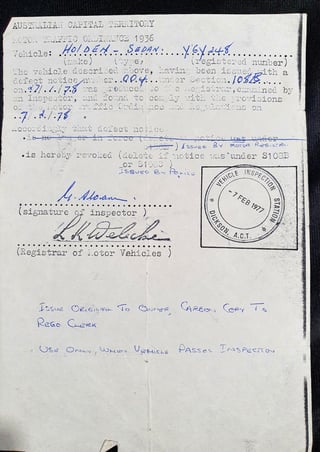 AUSTRALIAN CAPITAL TERRITORY
MOTOR TRAFFIC ORDINANCE 1936
Vehicle: HOLDEN - SEDAN. YGY248
(make) (type) (registered number)
The vehicle described above, having been issued with a
defect notice under Section 108B
on 7/1/78 was produced to the registrar, examined by
an inspector, and found to comply with the provisions
of the Motor Traffic Ordinance and regulations on
.7.2.1.78.
Accordingly that defect notice
notice was under
ISSUED BY MOTOR REGISTRY
.is hereby revoked (delete if notice was under S108B
ISSUED BY POLICE
(signature of inspector )
(Registrar of Motor Vehicles )
VEHICLE INSPECTION STATION
-7 FEB 1977
DICKSON, A.C.T.
ISSUE ORIGINAL TO OWNER, CARBON COPY TO
REGO CLERK
USE ONLY, WHEN VEHICLE PASSES INSPECTION